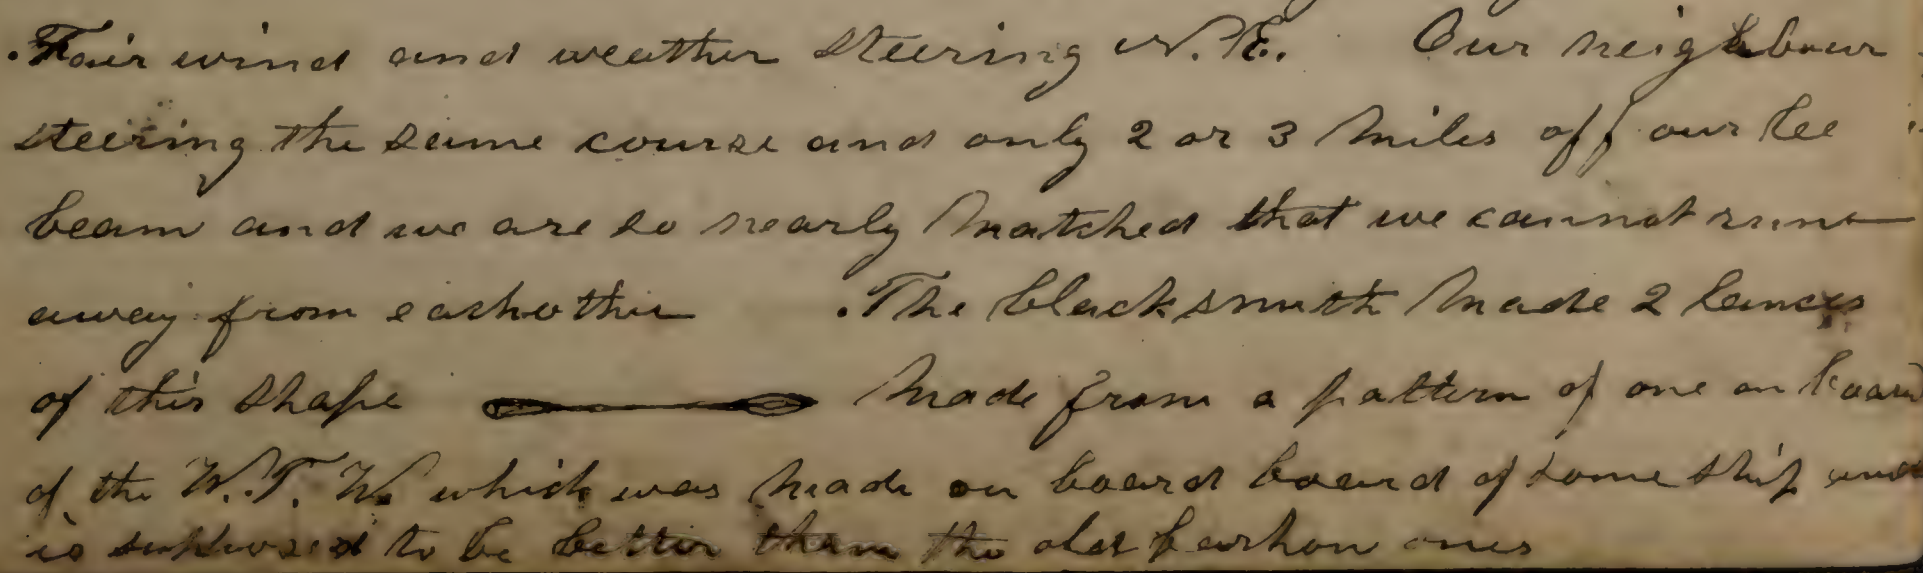 . Fair wind and weather steering N.E. Our neighbour
steering the same course and only 2 or 3 miles off our lee
beam and we are so nearly matched that we cannot run
away from eachother . The blacksmith made 2 lances
of this shape made from a pattern of one on board
of the W.T.W. which was made on board board of some ship and
is supposed to be better than the old fashion ones